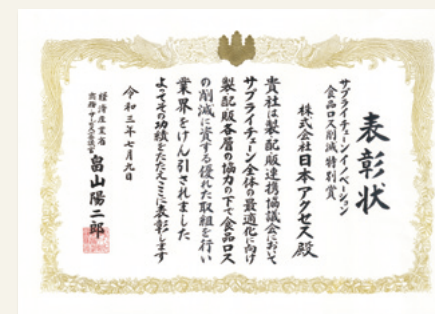 表彰状
サプライチェーンイノベーション
食品ロス削減特別賞
株式会社日本アクセス殿
貴社は製・配・販連携協議会において
サプライチェーン全体の最適化に向け
製・配・販各層の協力の下で食品ロス
の削減に資する優れた取組を行い
業界をけん引されました
よってその功績をたたえここに表彰します
令和三年七月九日
経済産業省
商務・サービス審議官
畠山陽二郎